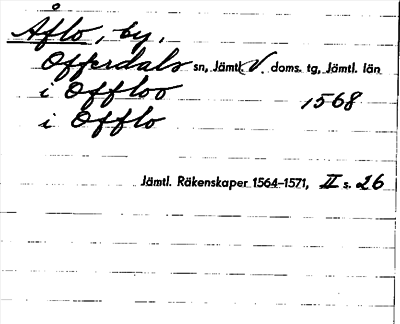 Åflo, by,
Offerdals sn, Jämtl. V. doms. tg, Jämtl. län
i Offloo 1568
i Offlo
Jämtl. Räkenskaper 1564-1571, II s. 26